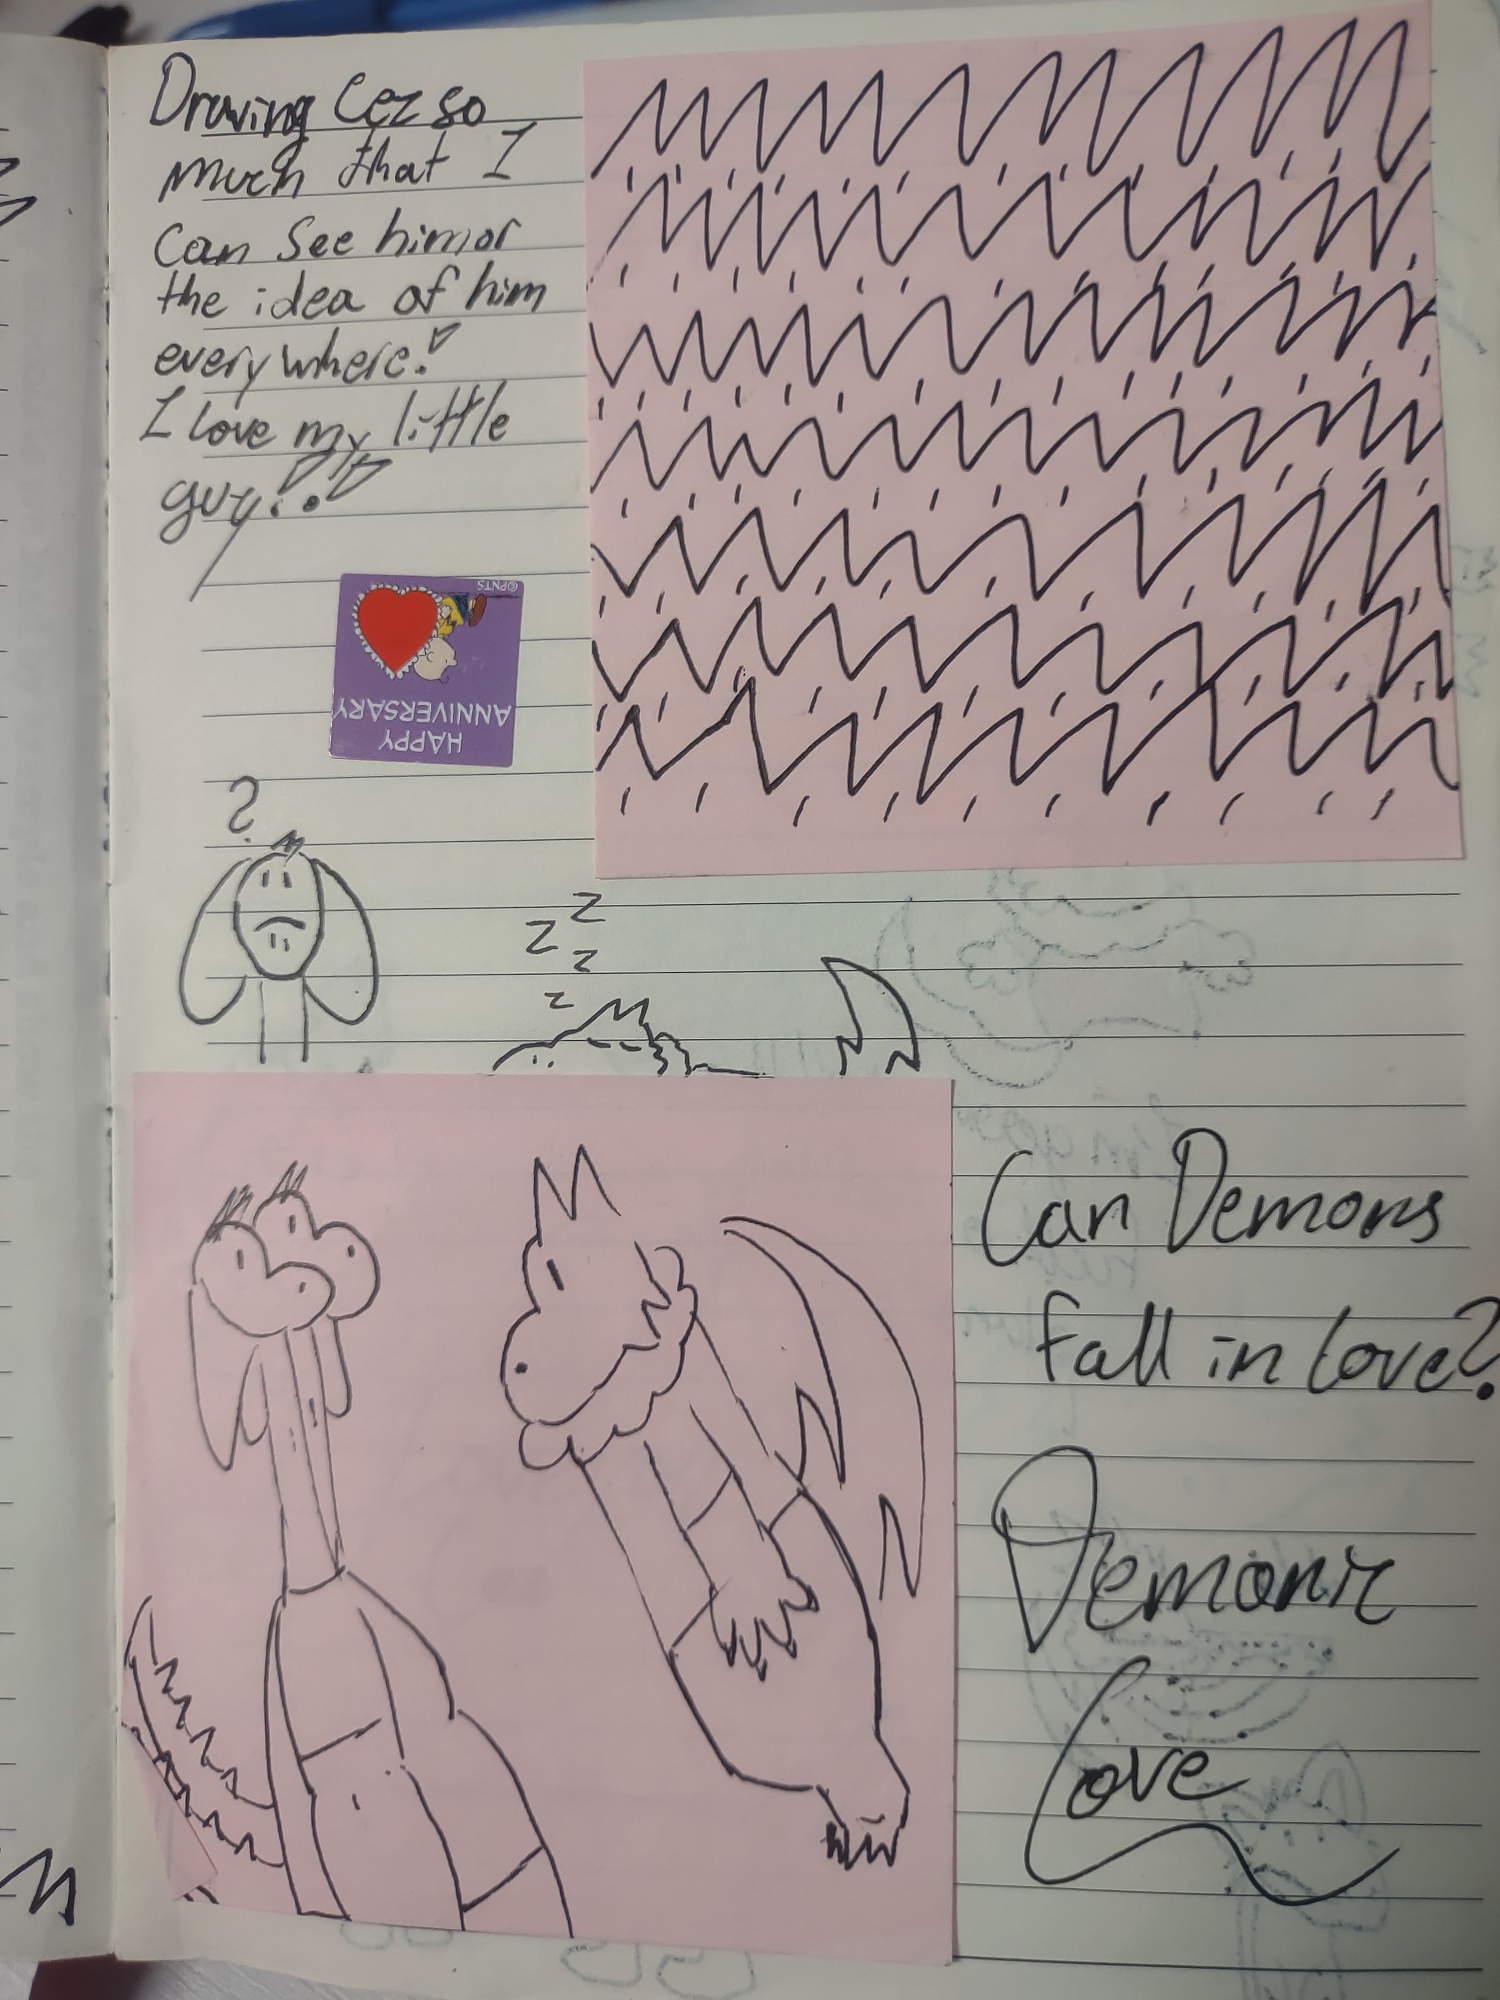 Drawing Cez so
much that I
can see him or
the idea of him
everywhere!
I love my little
guy!!!
©PNTS
HAPPY
ANNIVERSARY
?
z
z
z
z
Can Demons
fall in love?
Demonic
Love